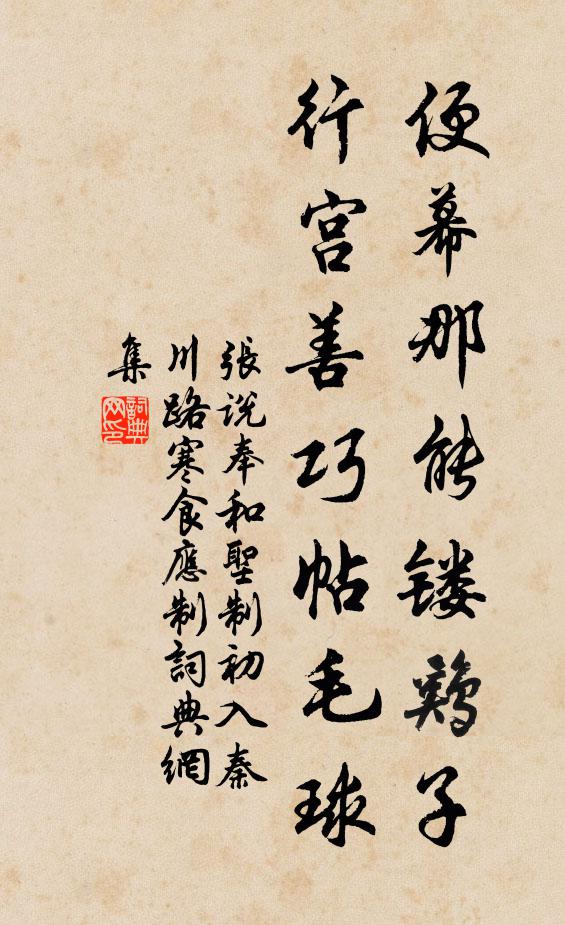 便幕那能镂鷄子
行宫善巧帖毛球
張说奉和聖制初入秦
川路寒食應制詞典網
集
詞典
网印